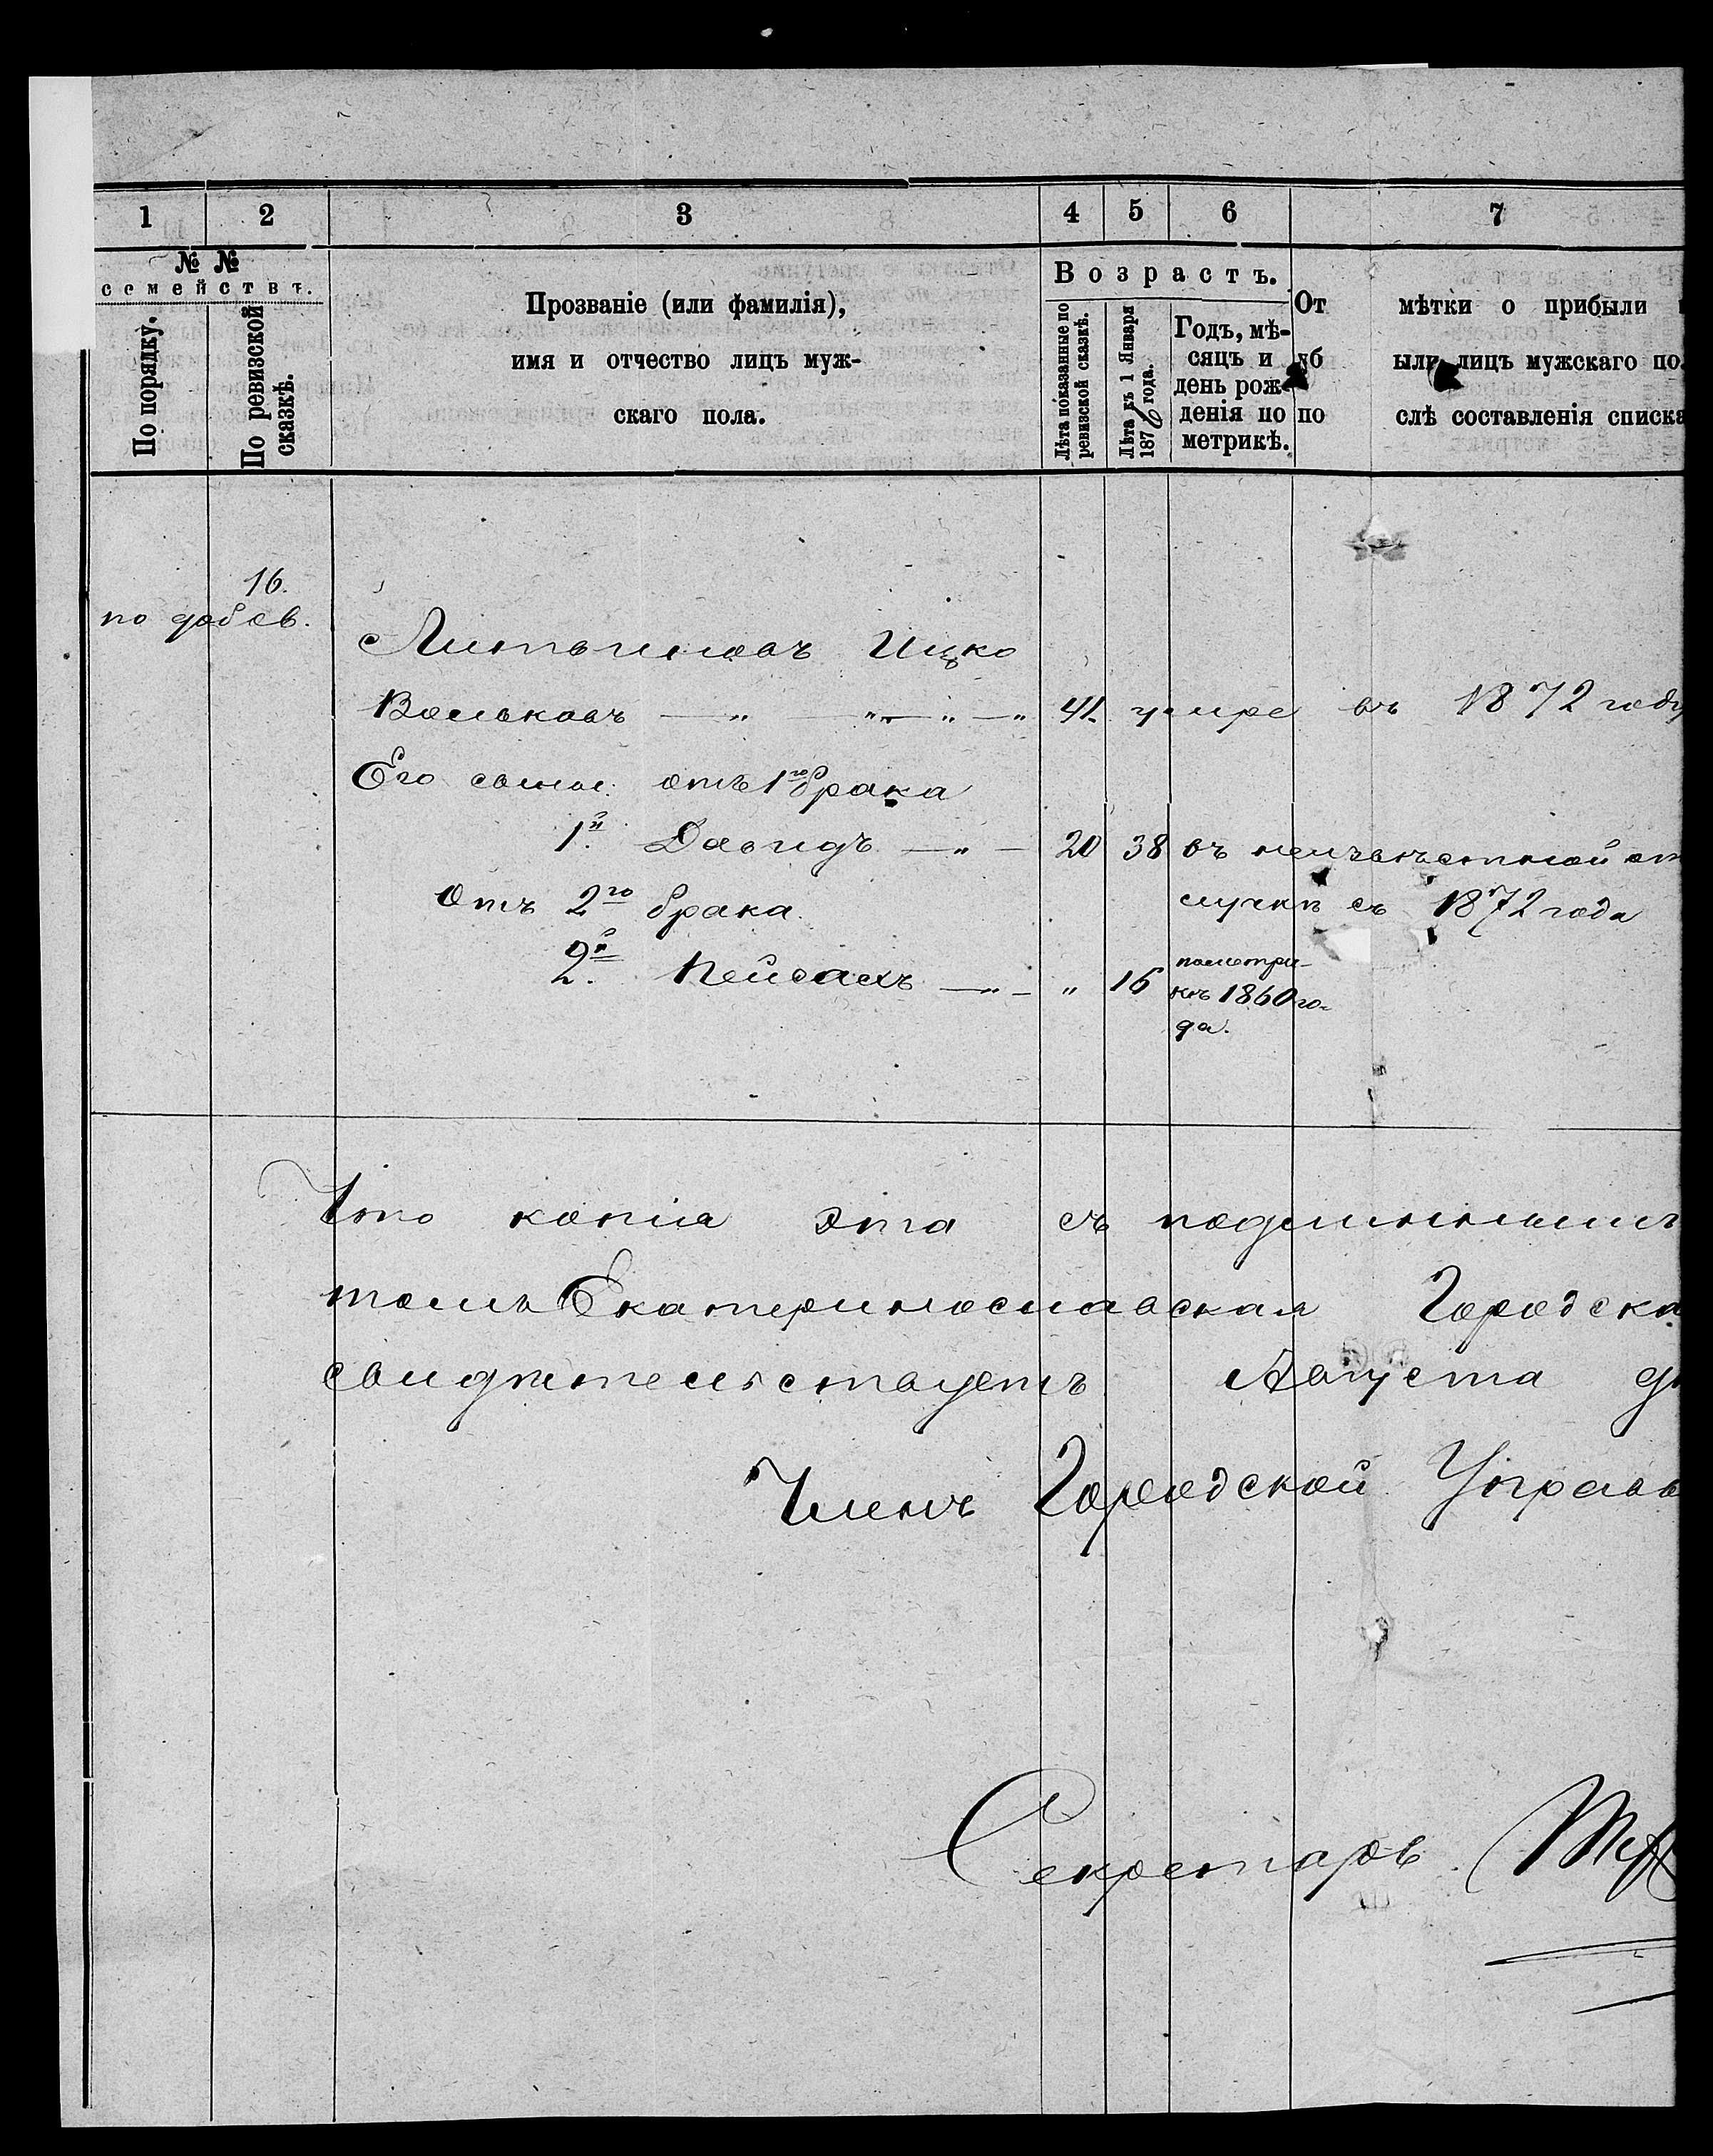 1 2 3 4 5 6 7
№ №
семействъ.
По порядку.
По ревизской
сказкѣ.
Прозваніе (или фамилія),
имя и отчество лицъ муж-
скаго пола.
Возрастъ.
Лѣта показанные по
ревизской сказкѣ.
Лѣта къ 1 Января
1876 года.
Годъ, мѣ-
сяцъ и
день рож-
денія по
метрикѣ.
От мѣтки о прибыли
уб ыли лицъ мужскаго по
по слѣ составленія списка
16.
по доб св.
Литвиновъ Ицко
Вольковъ — „ — „ — „ — „ 41. умре въ 1872 году
Его сыны: отъ 1го брака
1й Давидъ — „ — 20 38 въ неизвѣстной от
Отъ 2го брака. лучкѣ съ 1872 года
2й Пейсахъ — „ — „ 16 по метри-
кѣ 1860 го-
да.
Что копія эта съ подлиннымъ
томъ Екатеринославская Городска
свидѣтельствуетъ Августа д
Членъ Городской Управ
Секретарь